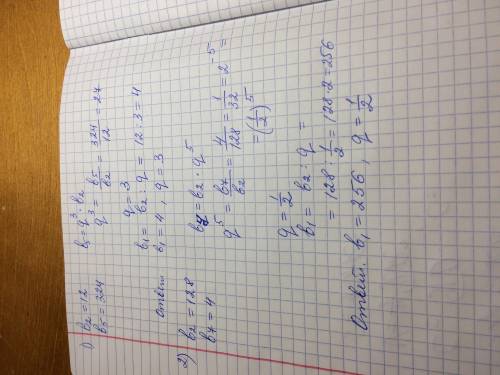 1) b₂ = 12   b₅ = q³ · b₂
b₅ = 324   q³ = b₅/b₂ = 324/12 = 27
q = 3
b₁ = b₂ : q = 12 : 3 = 4
Ответ b₁ = 4, q = 3
2) b₂ = 128   b₇ = b₂ · q⁵
b₇ = 4   q⁵ = b₇/b₂ = 4/128 = 1/32 = 2⁻⁵ =
= (1/2)⁵
q = 1/2
b₁ = b₂ : q =
= 128 : 1/2 = 128 · 2 = 256
Ответ. b₁ = 256, q = 1/2